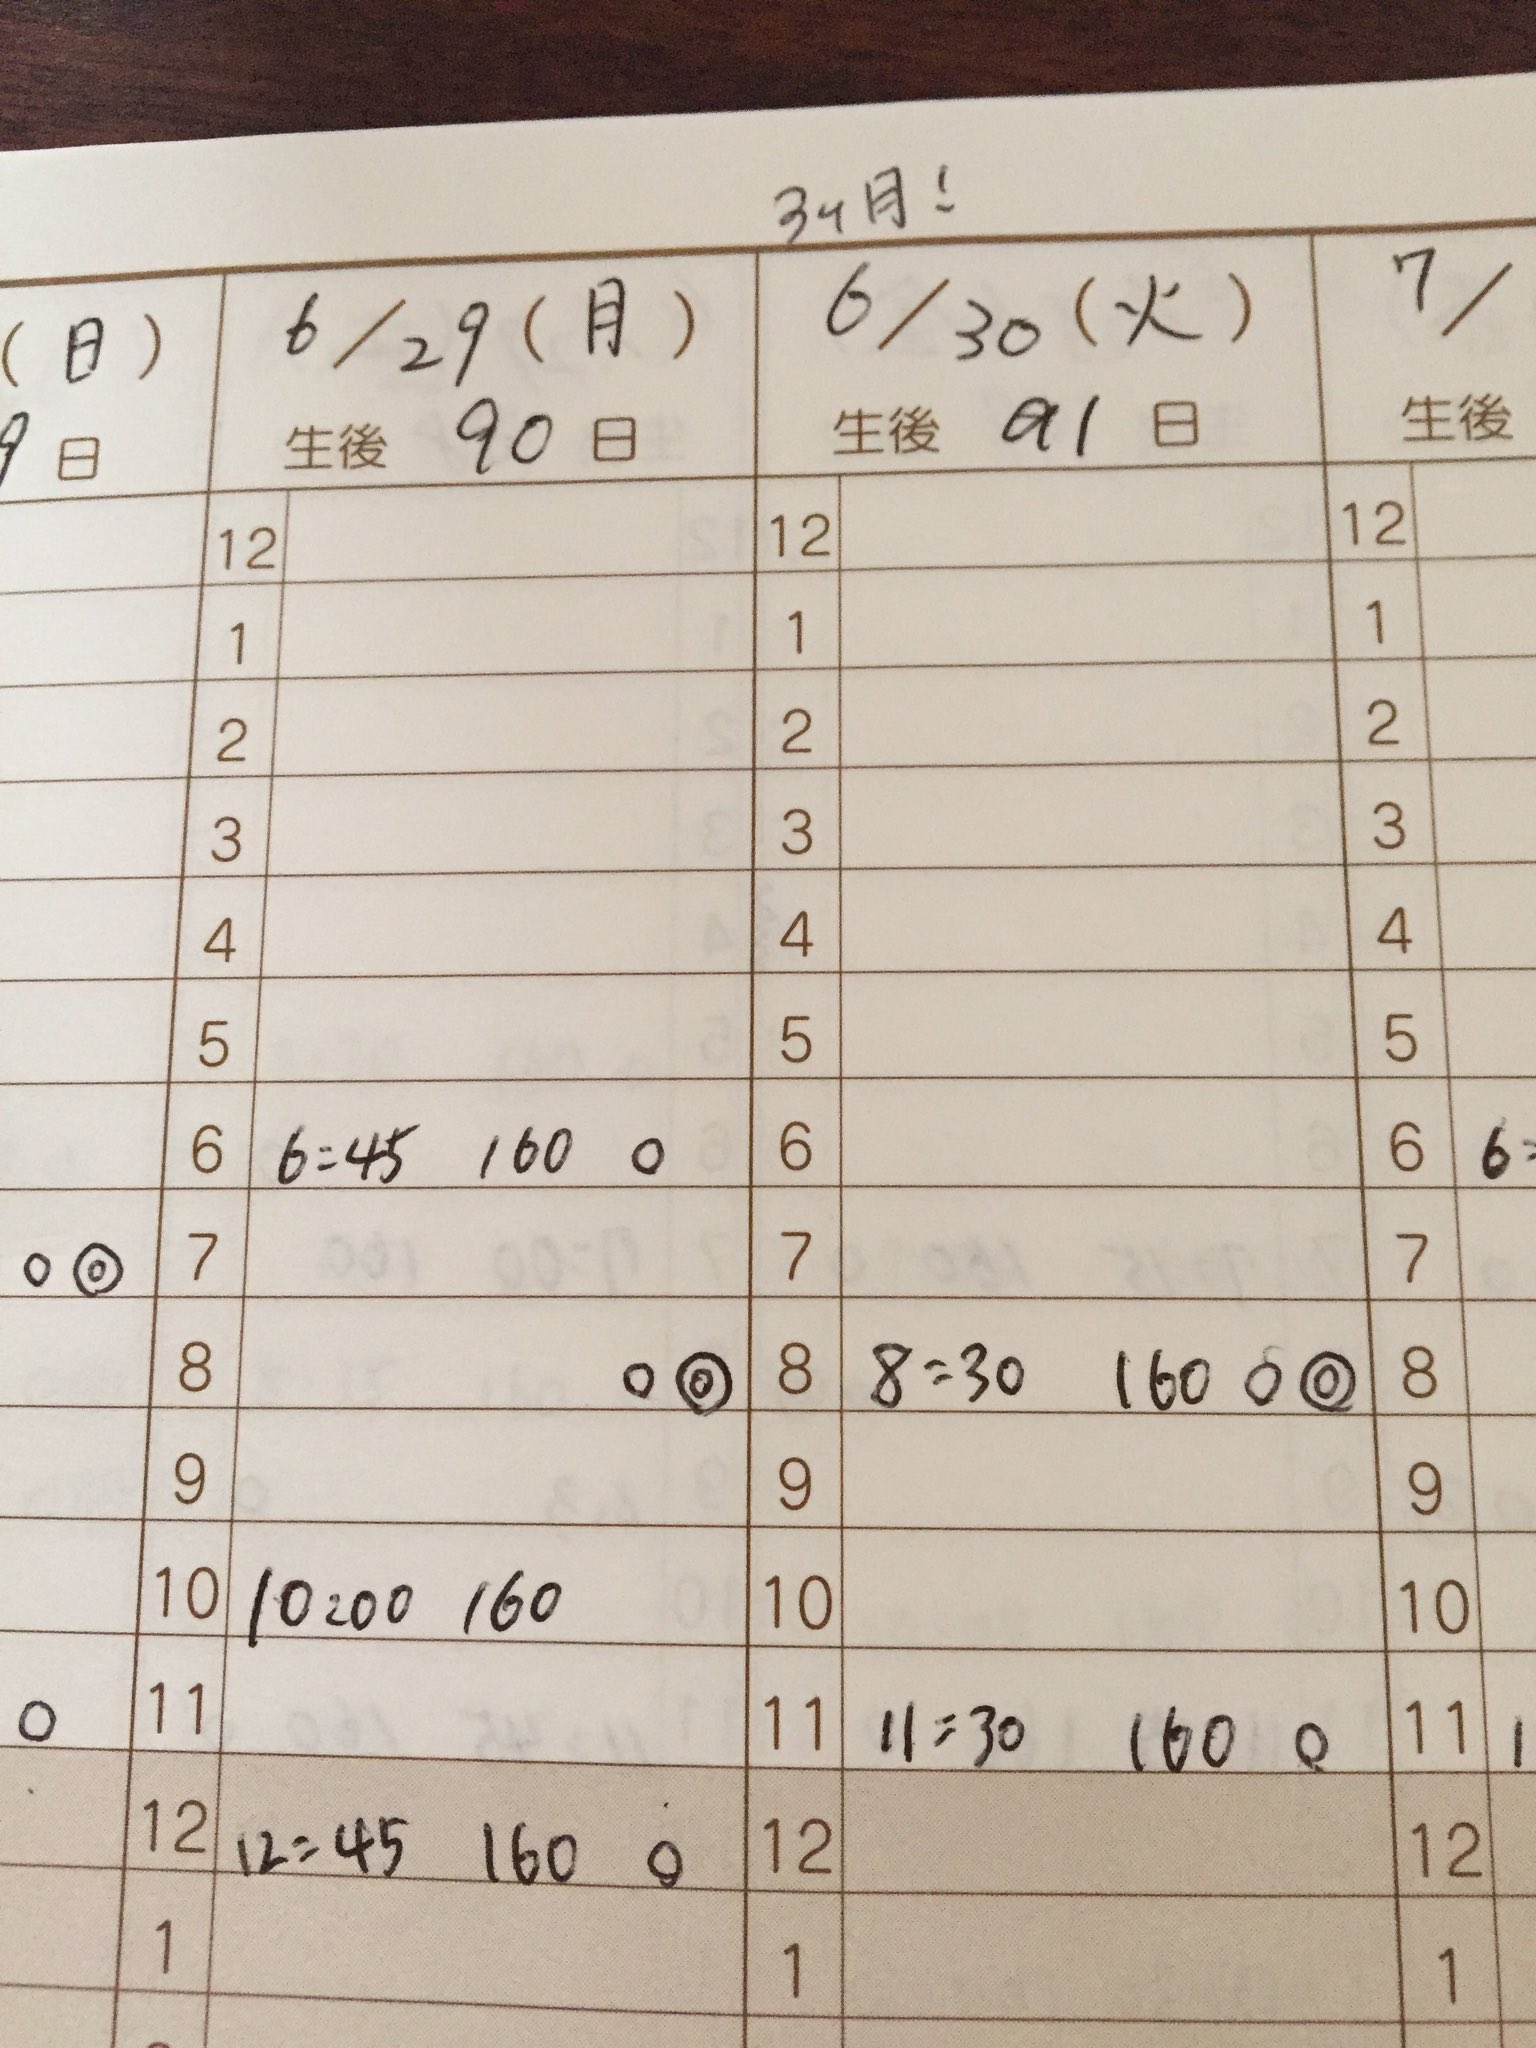 3ヶ月!
(日) 6/29(月) 6/30(火) 7/
9日 生後 90 日 生後 91 日 生後
12 12 12
1 1 1
2 2 2
3 3 3
4 4 4
5 5 5
6 6:45 160 ○ 6 6 6:
○◎ 7 7 7
8 ○◎ 8 8:30 160 ○◎ 8
9 9 9
10 10:00 160 10 10
○ 11 11 11:30 160 ○ 11 1
12 12:45 160 ○ 12 12
1 1 1